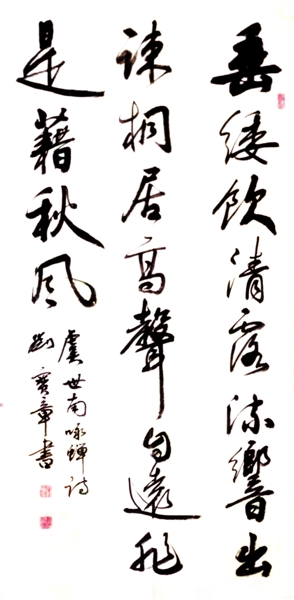 垂緌飲清露流響出
疎桐居高聲自遠非
是藉秋风
虞世南咏蝉诗
劉寶章書